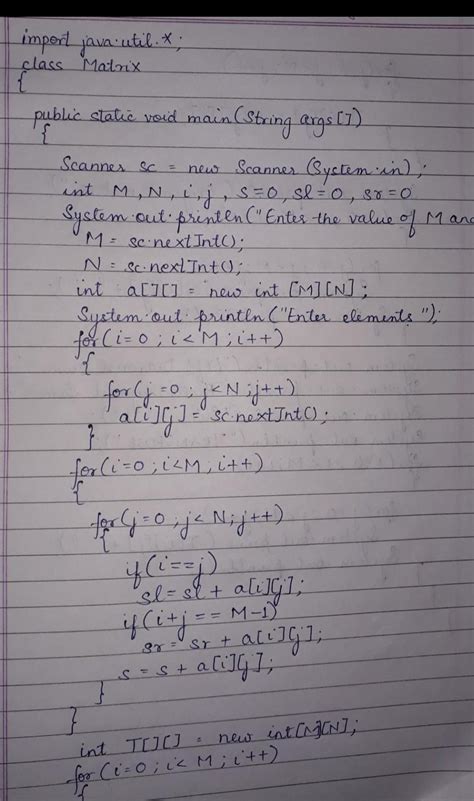 import java.util.*;
class Matrix
{
public static void main(String args[])
{
Scanner sc = new Scanner (System.in);
int M, N, i, j, s=0, sl=0, sr=0
System.out.println("Enter the value of M and
M = sc.nextInt();
N = sc.nextInt();
int a[][] = new int [M][N];
System.out.println("Enter elements");
for(i=0; i<M; i++)
{
for(j=0; j<N; j++)
a[i][j] = sc.nextInt();
}
for(i=0; i<M, i++)
{
for(j=0; j<N; j++)
{
if(i==j)
sl=sl + a[i][j];
if(i+j == M-1)
sr = sr + a[i][j];
s = s + a[i][j];
}
}
int T[][] = new int[M][N];
for (i=0; i<M; i++)
{